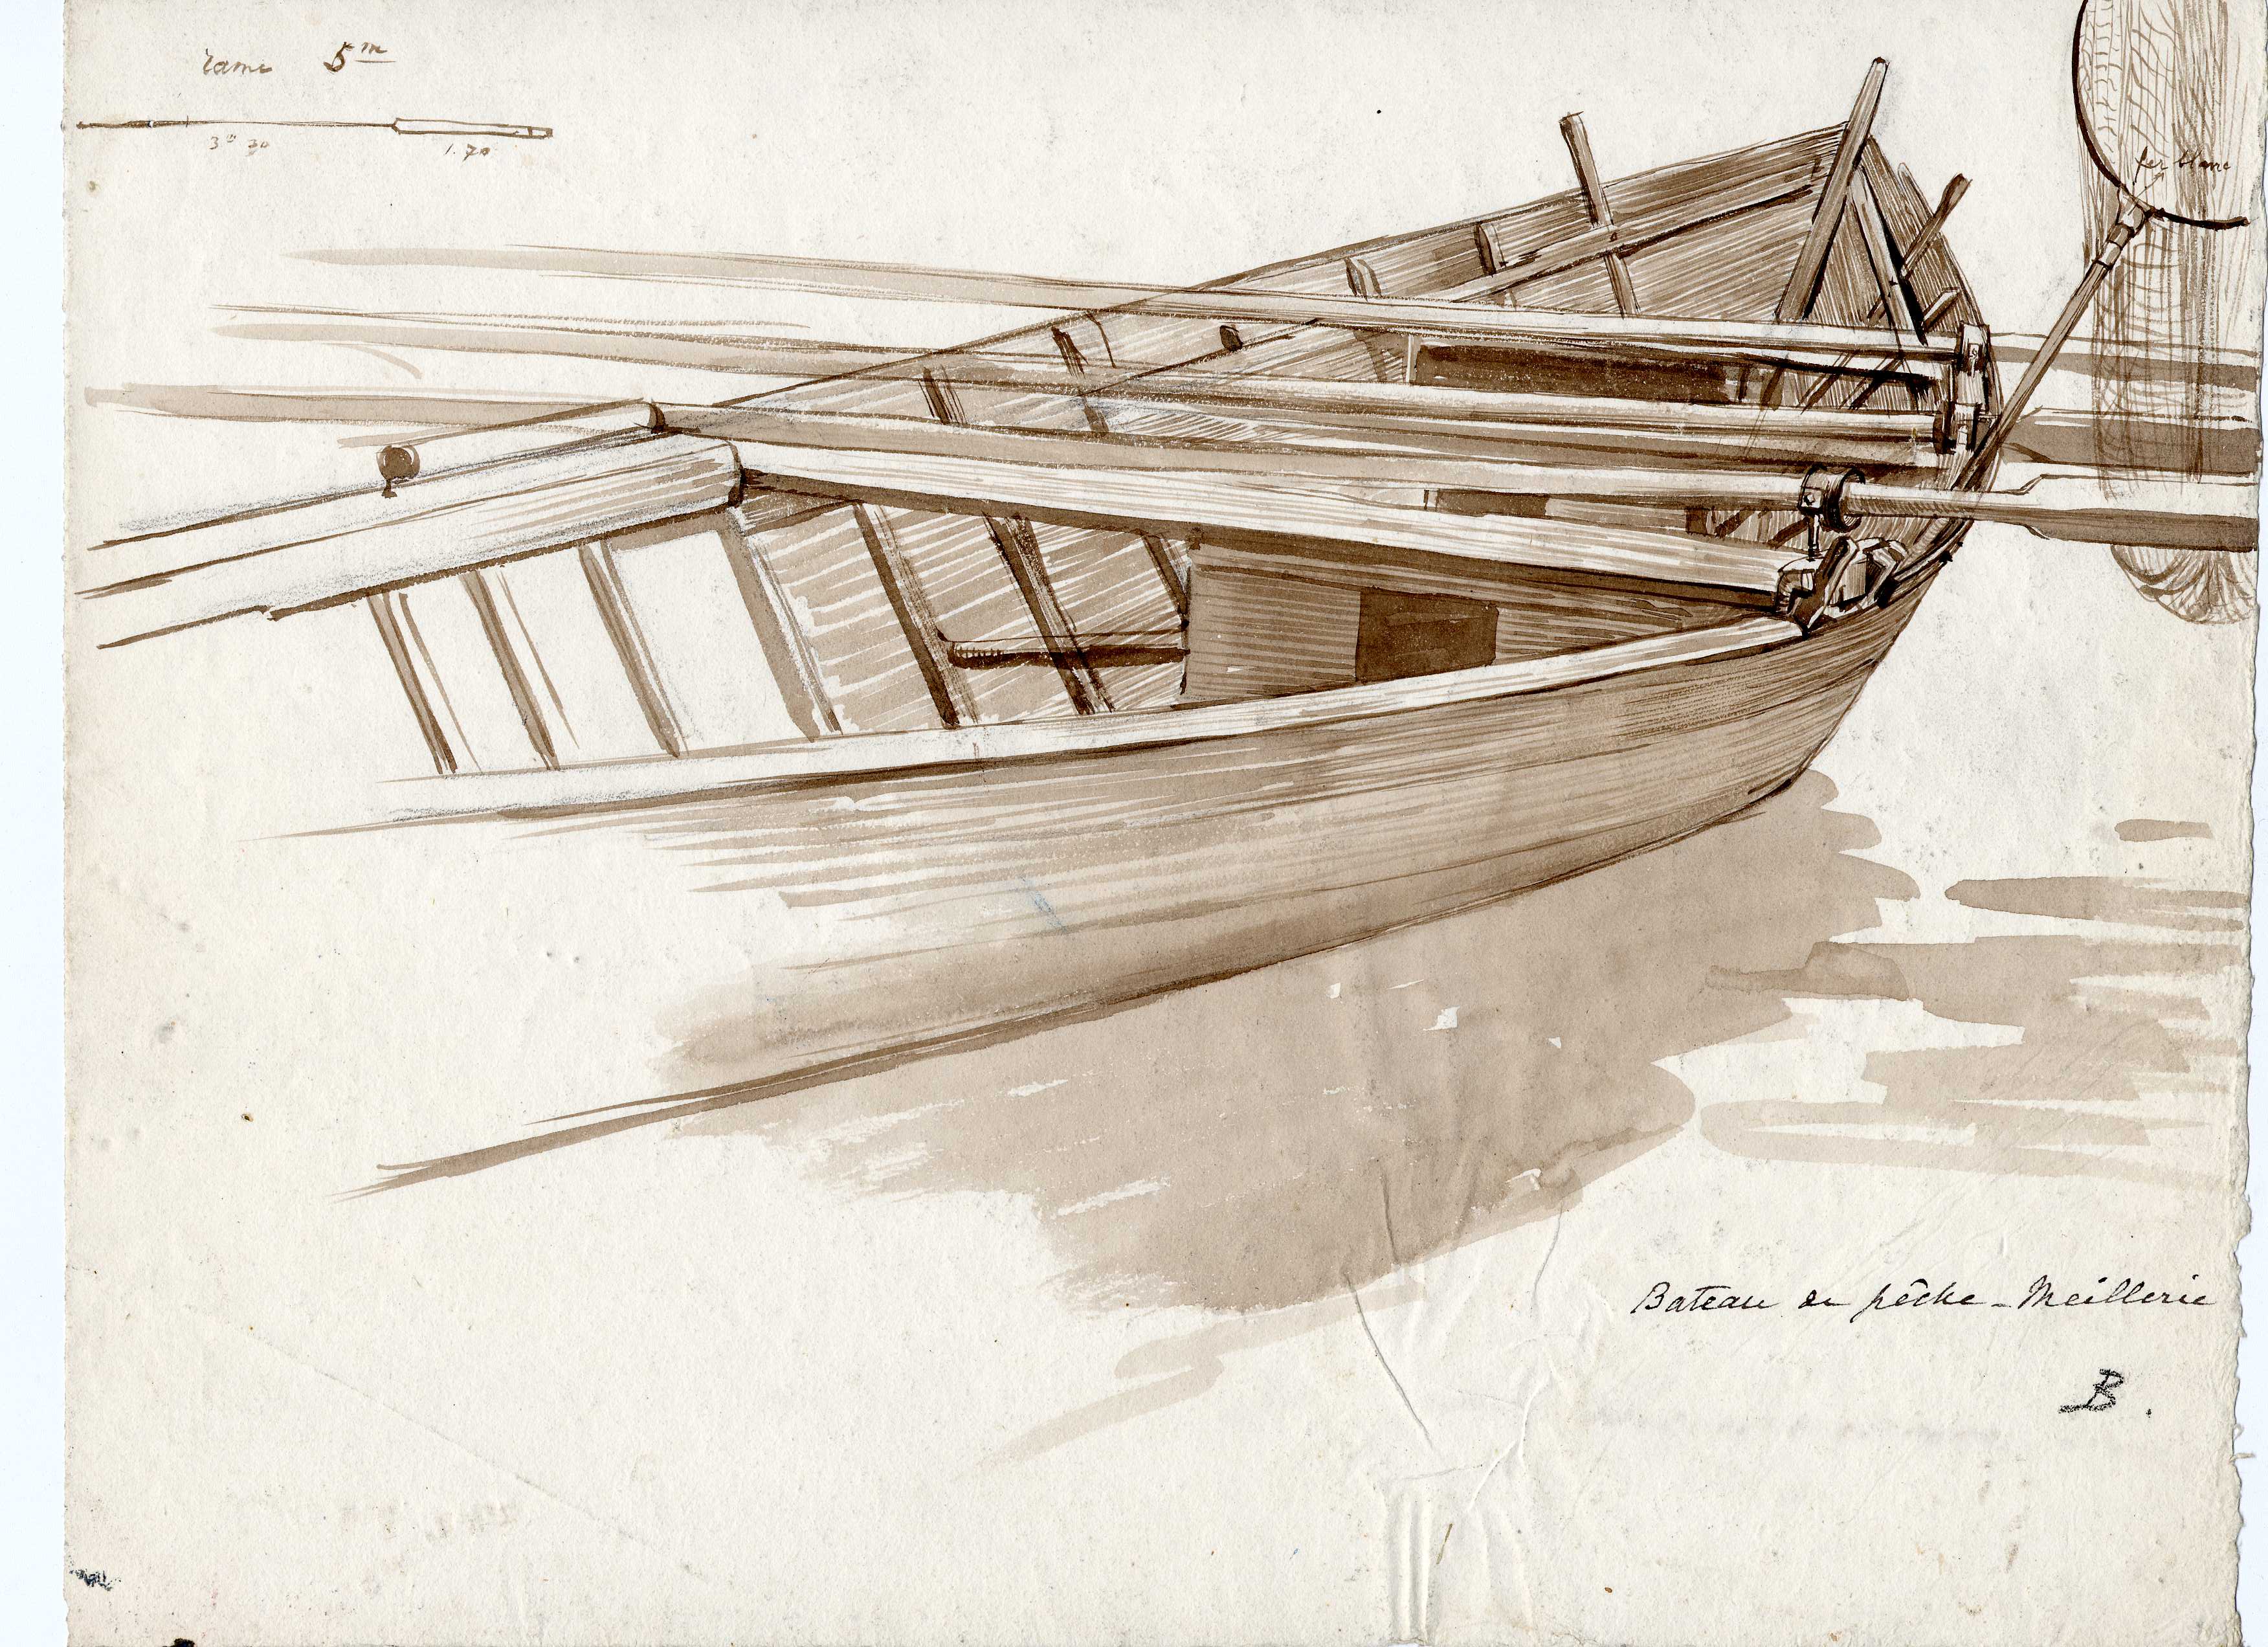 rame 5m
3m 30 1.70
fer blanc
Bateau de pêche - Meillerie
B.